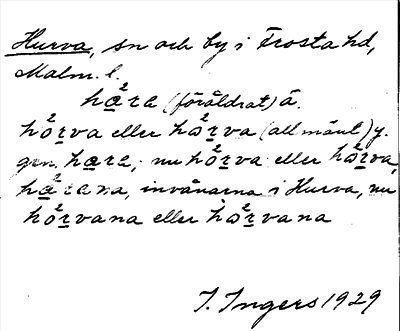 Hurva, sn och by i Frosta hd,
Malm. l.
hæ²ra (föråldrat) ä.
hö²rva eller hə²rva (allmänt) y.
gen. hæra, nu hö²rva eller hə²rva,
hæ²rana, invånarna i Hurva, nu
hö²rvana eller hə²rvana
I. Ingers 1929